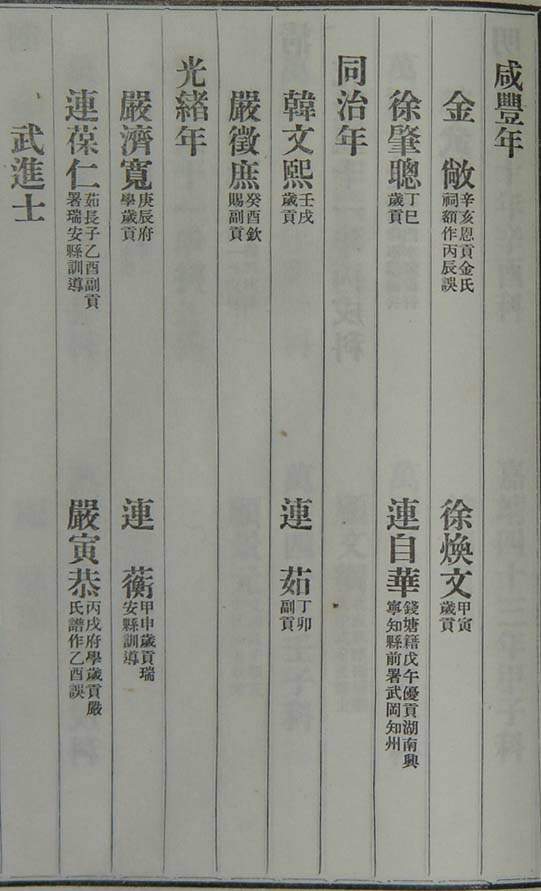 咸豐年
金敞辛亥恩貢金氏祠額作丙辰誤　徐煥文甲寅歲貢
徐肇聰丁巳歲貢　連自華錢塘籍戊午優貢湖南興寧知縣前署武岡知州
同治年
韓文熙壬戌歲貢　連茹丁卯副貢
嚴徵庶癸酉欽賜副貢
光緒年
嚴濟寬庚辰府學歲貢　連蘅甲申歲貢瑞安縣訓導
連葆仁茹長子乙酉副貢署瑞安縣訓導　嚴寅恭丙戌府學歲貢嚴氏譜作乙酉誤
武進士